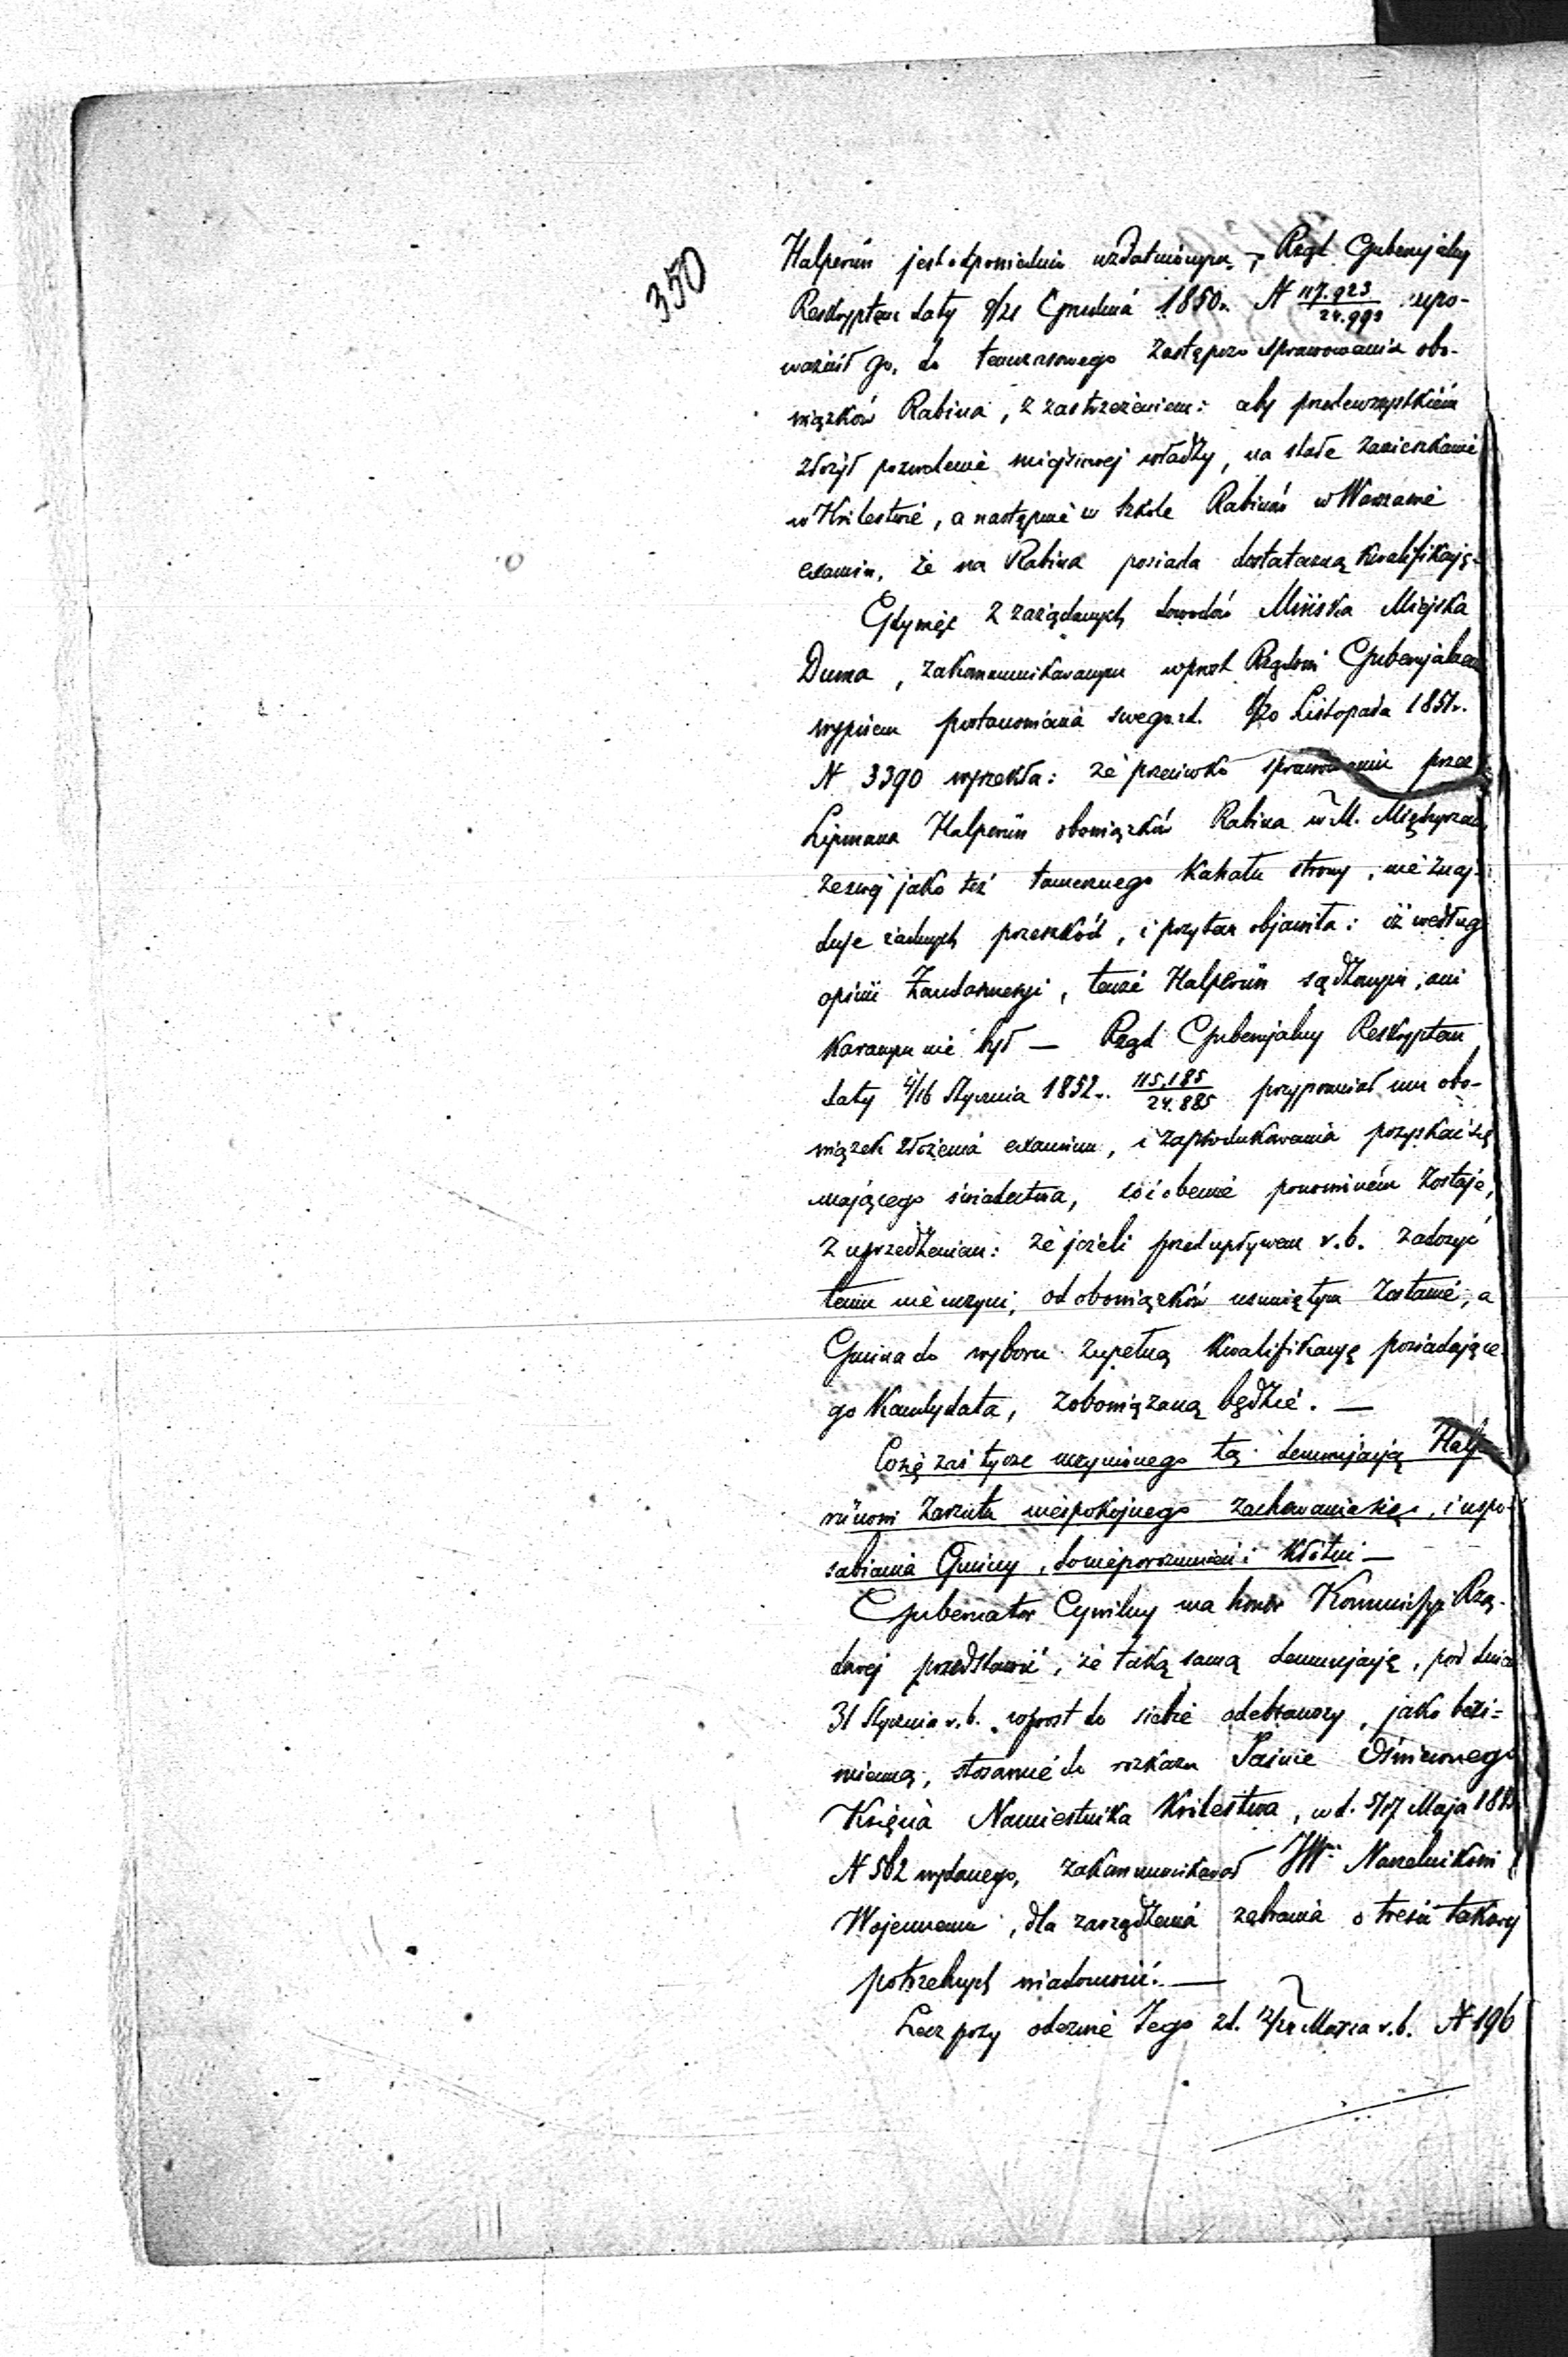 350
Halperin jest odpowiednio uzdatnionym, Rząd Gubernjalny
Reskryptem daty 9/21 Grudnia 1850r. N 117.923/24.993 upo-
ważnił go, do tymczasowego zastępczo sprawowania obo-
wiązków Rabina, z zastrzeżeniem: aby przedewszystkiém
złożył pozwolenie miejscowej władzy, na stałe zamieszkanie
w Królestwie, a następnie w Szkole Rabinów w Warszawie
examin, że na Rabina posiada dostateczną kwalifikacją.
Gdy więc z zażądanych dowodów Mińska Miejska
Duma, zakommunikowanym wprost Rządowi Gubernjalnemu
wypisem postanowienia swego z d. 8/20 Listopada 1851r.
N 3390 wyrzekła: że przeciwko sprawowaniu przez
Lipmana Halperin obowiązków Rabina w M. Międzyrzecu
ze swej jako też tamecznego Kahału strony, nie znaj-
duje żadnych przeszkód, i przytem objawiła: iż według
opinii Żandarmerji, tenże Halperin sądzonym, ani
karanym nie był — Rząd Gubernjalny Reskryptem
daty 4/16 Stycznia 1852r. 115.185/24.885 przypomniał mu obo-
wiązek złożenia examinu, i zaprodukowania pozyskać się
mającego świadectwa, co i obecnie ponowioném zostaje,
z uprzedzeniem: że jeżeli przed upływem r.b. zadosyć
temu nie uczyni, od obowiązków usuniętym zostanie, a
Gmina do wyboru zupełną kwalifikacyę posiadające-
go Kandydata, zobowiązaną będzie. —
Co się zaś tycze uczynionego tą denuncjacją Halpe-
rinowi zarzutu niespokojnego zachowania się, i uspo-
sabiania Gminy, do nieporozumień i kłótni —
Gubernator Cywilny ma honor Kommissyi Rzą-
dowej przedstawić, że taką samą denuncjacją, pod dniem
31 Stycznia r.b. wprost do siebie odebrawszy, jako bezi=
mienną, stosownie do rozkazu Jaśnie Oświeconego
Księcia Namiestnika Królestwa, w d. 5/17 Maja
N 502 wydanego, zakommunikował JW. Naczelnikowi
Wojennemu, dla zarządzenia zebrania o treści takowej
potrzebnych wiadomości. —
Lecz przy odezwie Jego z d. 12/24 Marca r.b. N 196